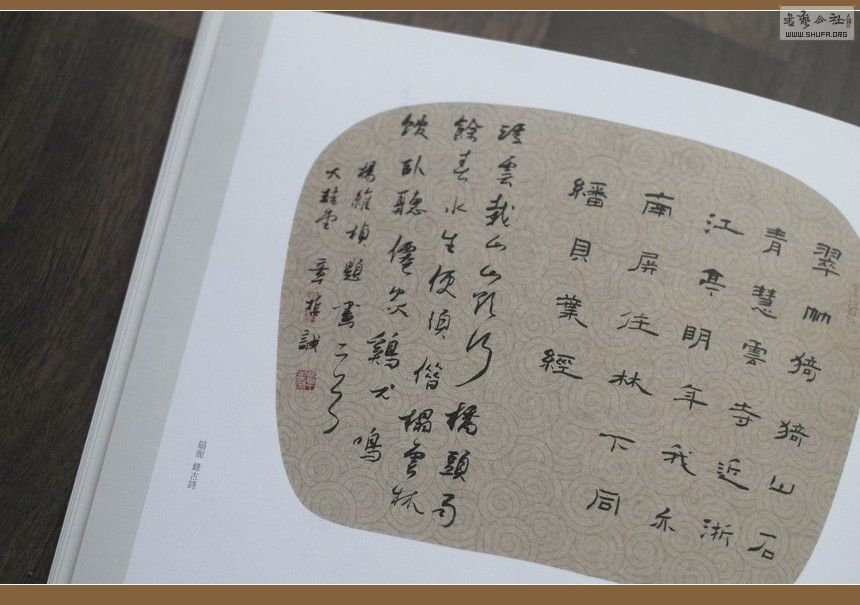 翠竹猗猗山石
青慧雲寺近浙
江亭明年我亦
南屏住林下同
繙貝葉經
浮雲載山山欲行橋頭雨
餘春水生便須借榻雲林
館臥聽僊家鷄犬鳴
楊維楨題畫二首
大 堂 章 誠
扇面 錄古詩
書藝公社
WWW.SHUFA.ORG